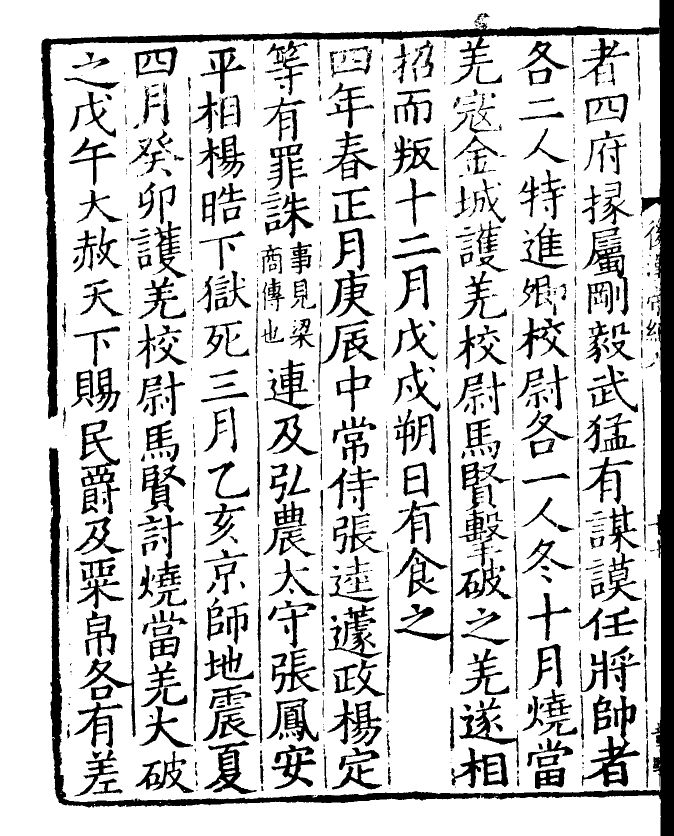 者四府掾屬剛毅武猛有謀謨任將帥者
各二人特進卿校尉各一人冬十月燒當
羌寇金城護羌校尉馬賢擊破之羌遂相
招而叛十二月戊戌朔日有食之
四年春正月庚辰中常侍張逵蘧政楊定
等有罪誅事見梁商傳也連及弘農太守張鳳安
平相楊晧下獄死三月乙亥京師地震夏
四月癸卯護羌校尉馬賢討燒當羌大破
之戊午大赦天下賜民爵及粟帛各有差